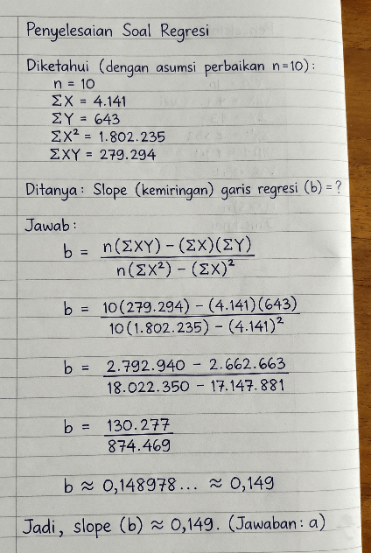 Penyelesaian Soal Regresi
Diketahui (dengan asumsi perbaikan n=10):
n = 10
ΣX = 4.141
ΣY = 643
ΣX² = 1.802.235
ΣXY = 279.294
Ditanya: Slope (kemiringan) garis regresi (b) = ?
Jawab:
b = n(ΣXY) – (ΣX)(ΣY)
n(ΣX²) – (ΣX)²
b = 10(279.294) – (4.141)(643)
10(1.802.235) – (4.141)²
b = 2.792.940 – 2.662.663
18.022.350 – 17.147.881
b = 130.277
874.469
b ≈ 0,148978... ≈ 0,149
Jadi, slope (b) ≈ 0,149. (Jawaban: a)